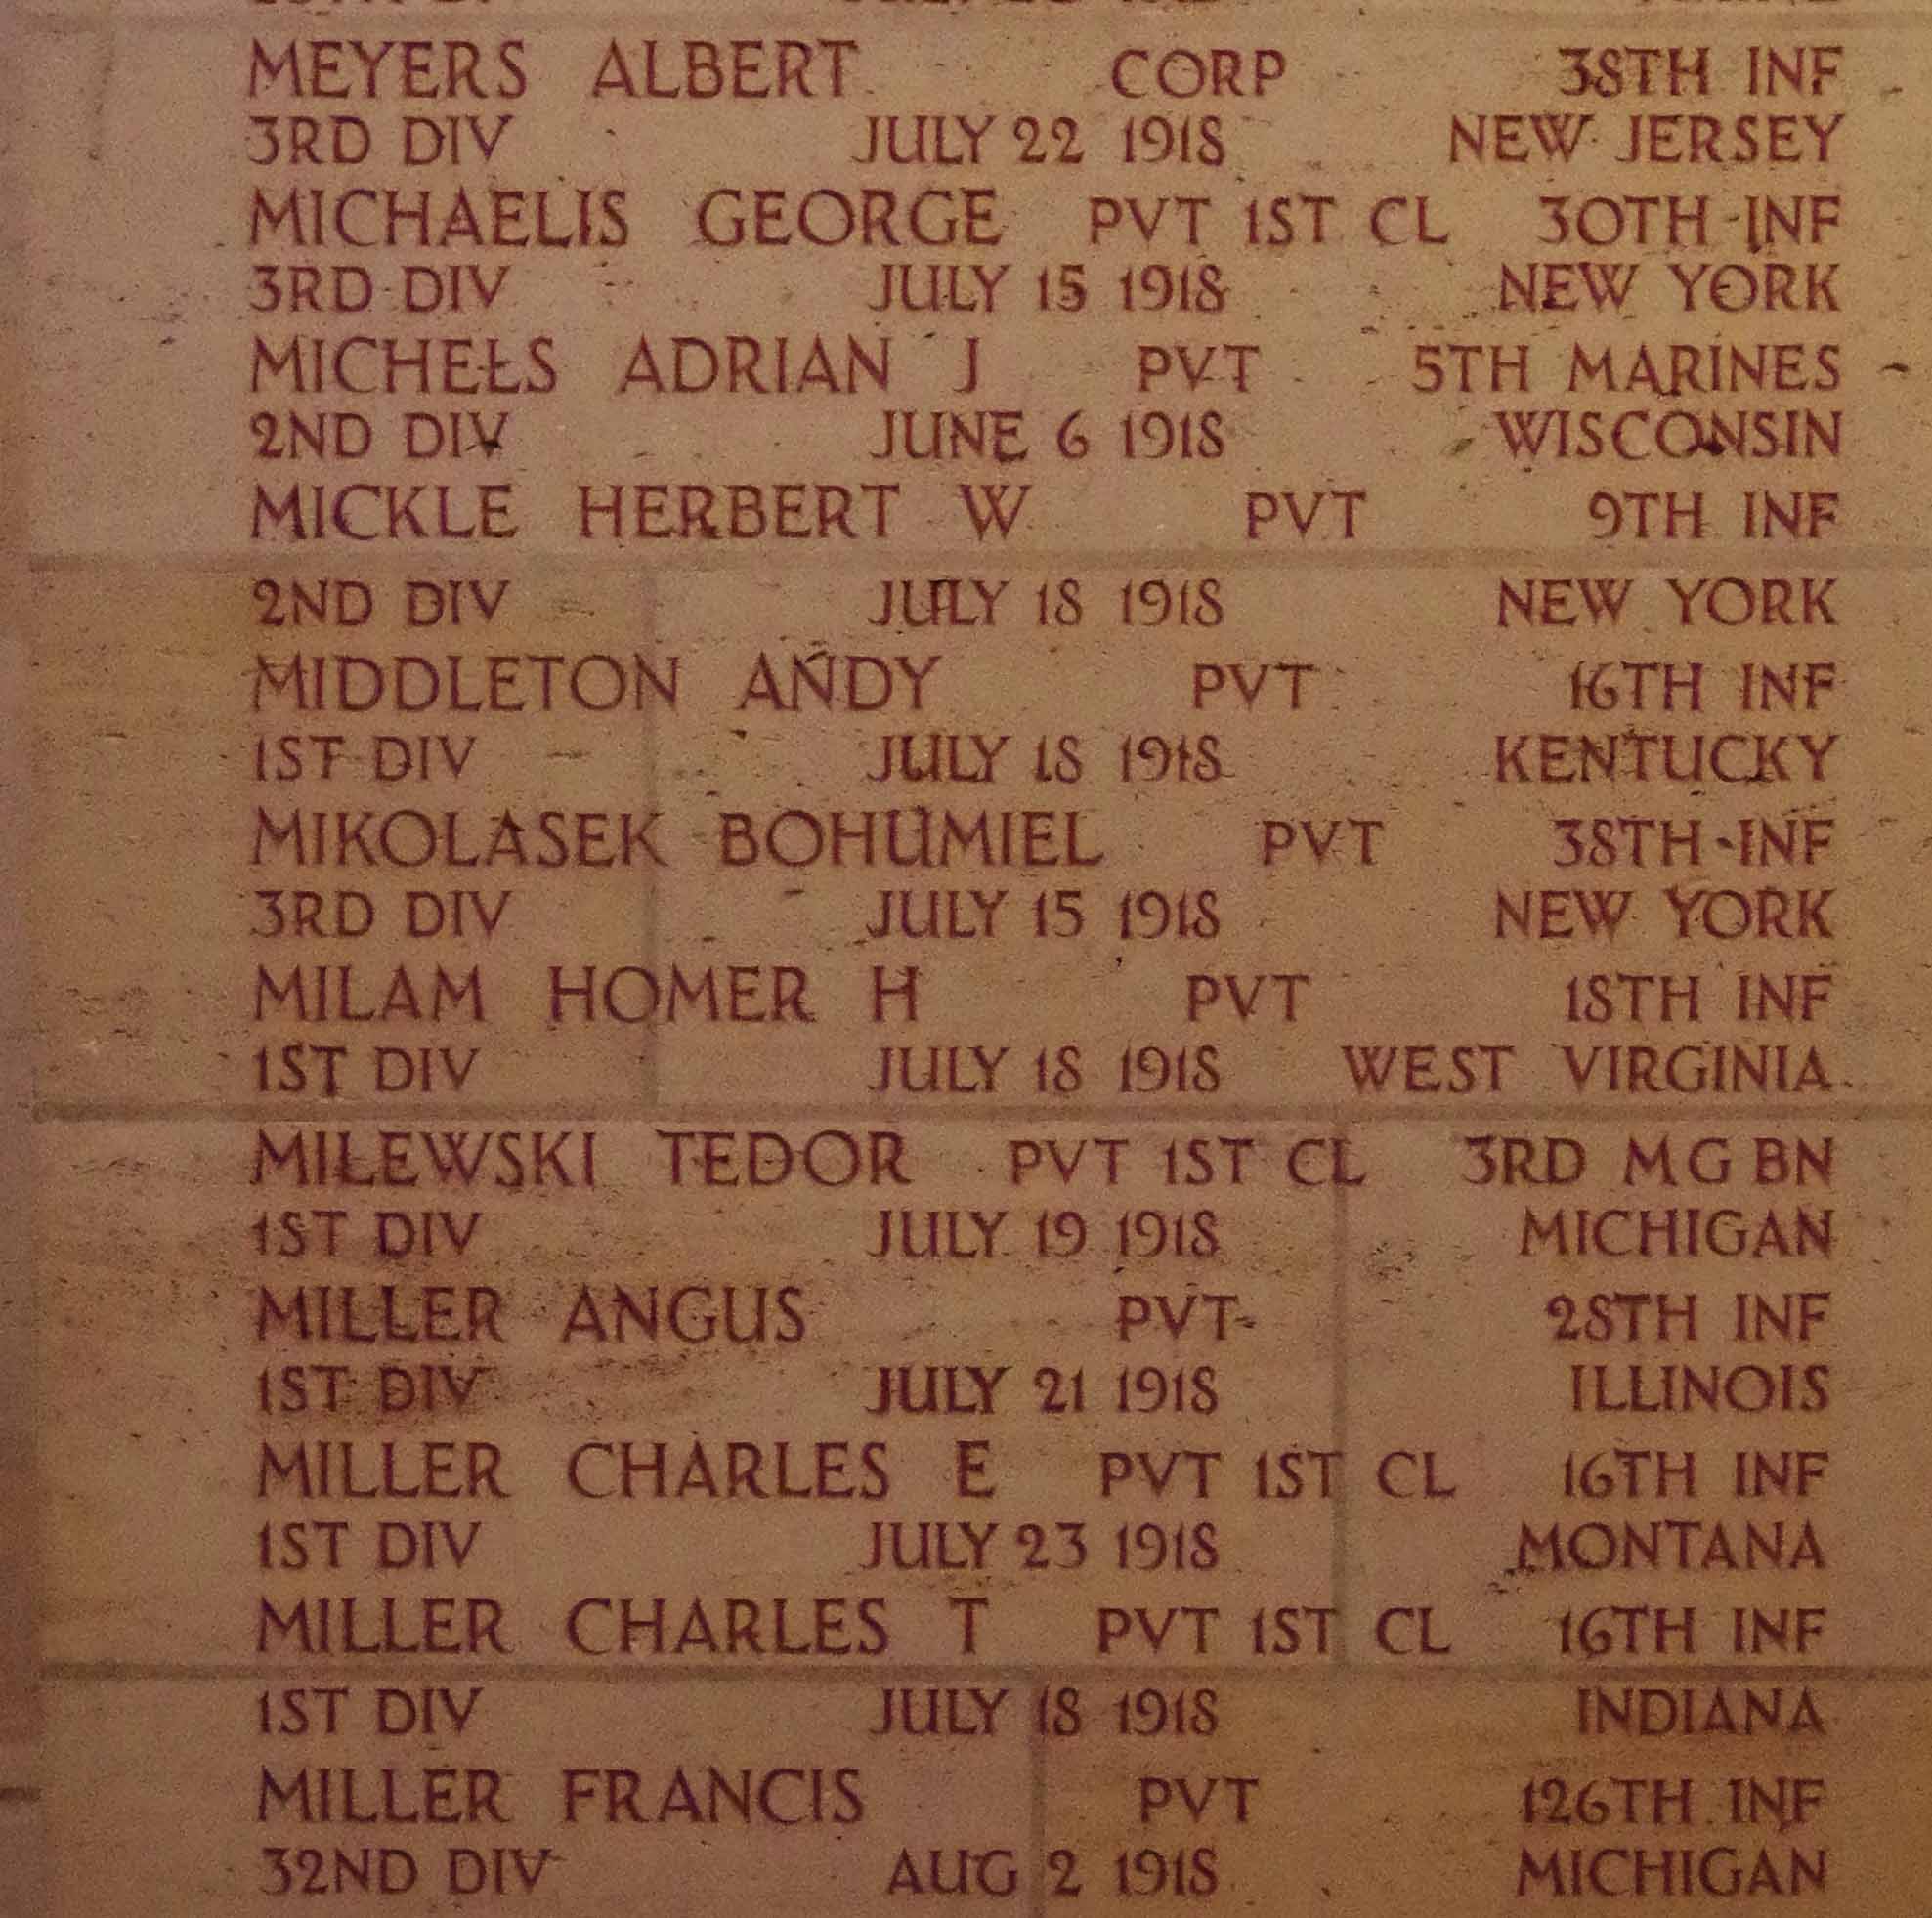 MEYERS ALBERT CORP 38TH INF
3RD DIV JULY 22 1918 NEW JERSEY
MICHAELIS GEORGE PVT 1ST CL 30TH INF
3RD DIV JULY 15 1918 NEW YORK
MICHELS ADRIAN J PVT 5TH MARINES
2ND DIV JUNE 6 1918 WISCONSIN
MICKLE HERBERT W PVT 9TH INF
2ND DIV JULY 18 1918 NEW YORK
MIDDLETON ANDY PVT 16TH INF
1ST DIV JULY 18 1918 KENTUCKY
MIKOLASEK BOHUMIEL PVT 38TH INF
3RD DIV JULY 15 1918 NEW YORK
MILAM HOMER H PVT 18TH INF
1ST DIV JULY 18 1918 WEST VIRGINIA
MILEWSKI TEDOR PVT 1ST CL 3RD M G BN
1ST DIV JULY 19 1918 MICHIGAN
MILLER ANGUS PVT 28TH INF
1ST DIV JULY 21 1918 ILLINOIS
MILLER CHARLES E PVT 1ST CL 16TH INF
1ST DIV JULY 23 1918 MONTANA
MILLER CHARLES T PVT 1ST CL 16TH INF
1ST DIV JULY 18 1918 INDIANA
MILLER FRANCIS PVT 126TH INF
32ND DIV AUG 2 1918 MICHIGAN